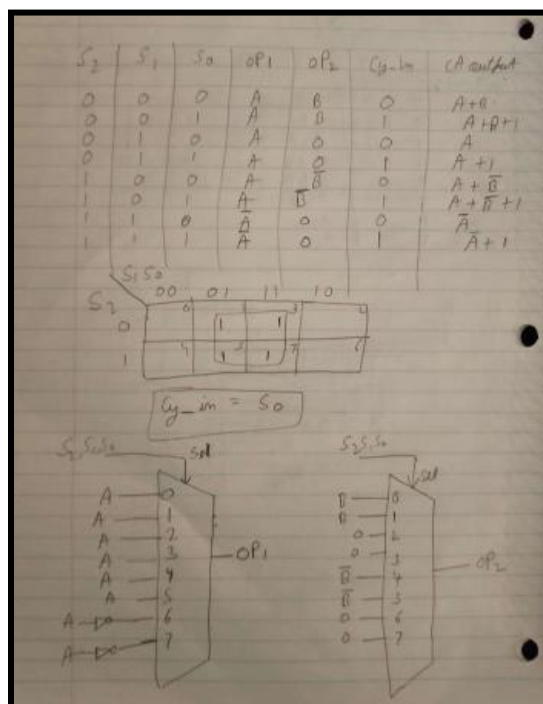 S2 S1 S0 OP1 OP2 Cy_in CA output
0 0 0 A B 0 A+B
0 0 1 A B 1 A+B+1
0 1 0 A 0 0 A
0 1 1 A 0 1 A+1
1 0 0 A B̅ 0 A+B̅
1 0 1 A B̅ 1 A+B̅+1
1 1 0 A̅ 0 0 A̅
1 1 1 A̅ 0 1 A̅+1
S1 S0
S2 00 01 11 10
0 0 1 1 1 3 2
1 4 1 5 1 7 6
Cy_in = S0
S2,S1,S0 sel
A 0
A 1
A 2
A 3
A 4
A 5
A 6
A 7
OP1
S2S1S0 sel
B 0
B 1
0 2
0 3
B̅ 4
B̅ 5
0 6
0 7
OP2